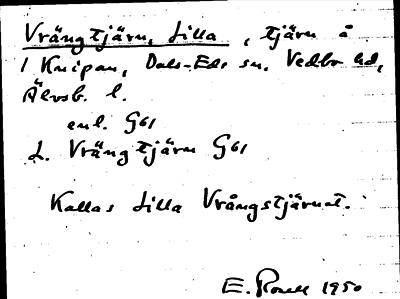 Vrängtjärn, Lilla, tjärn å
1 Knipan, Dals-Eds sn. Vedbo hd,
Älvsb. l.
enl. G61
L. Vrängtjärn G61
Kallas Lilla Vrångstjärnet.
E. 1950